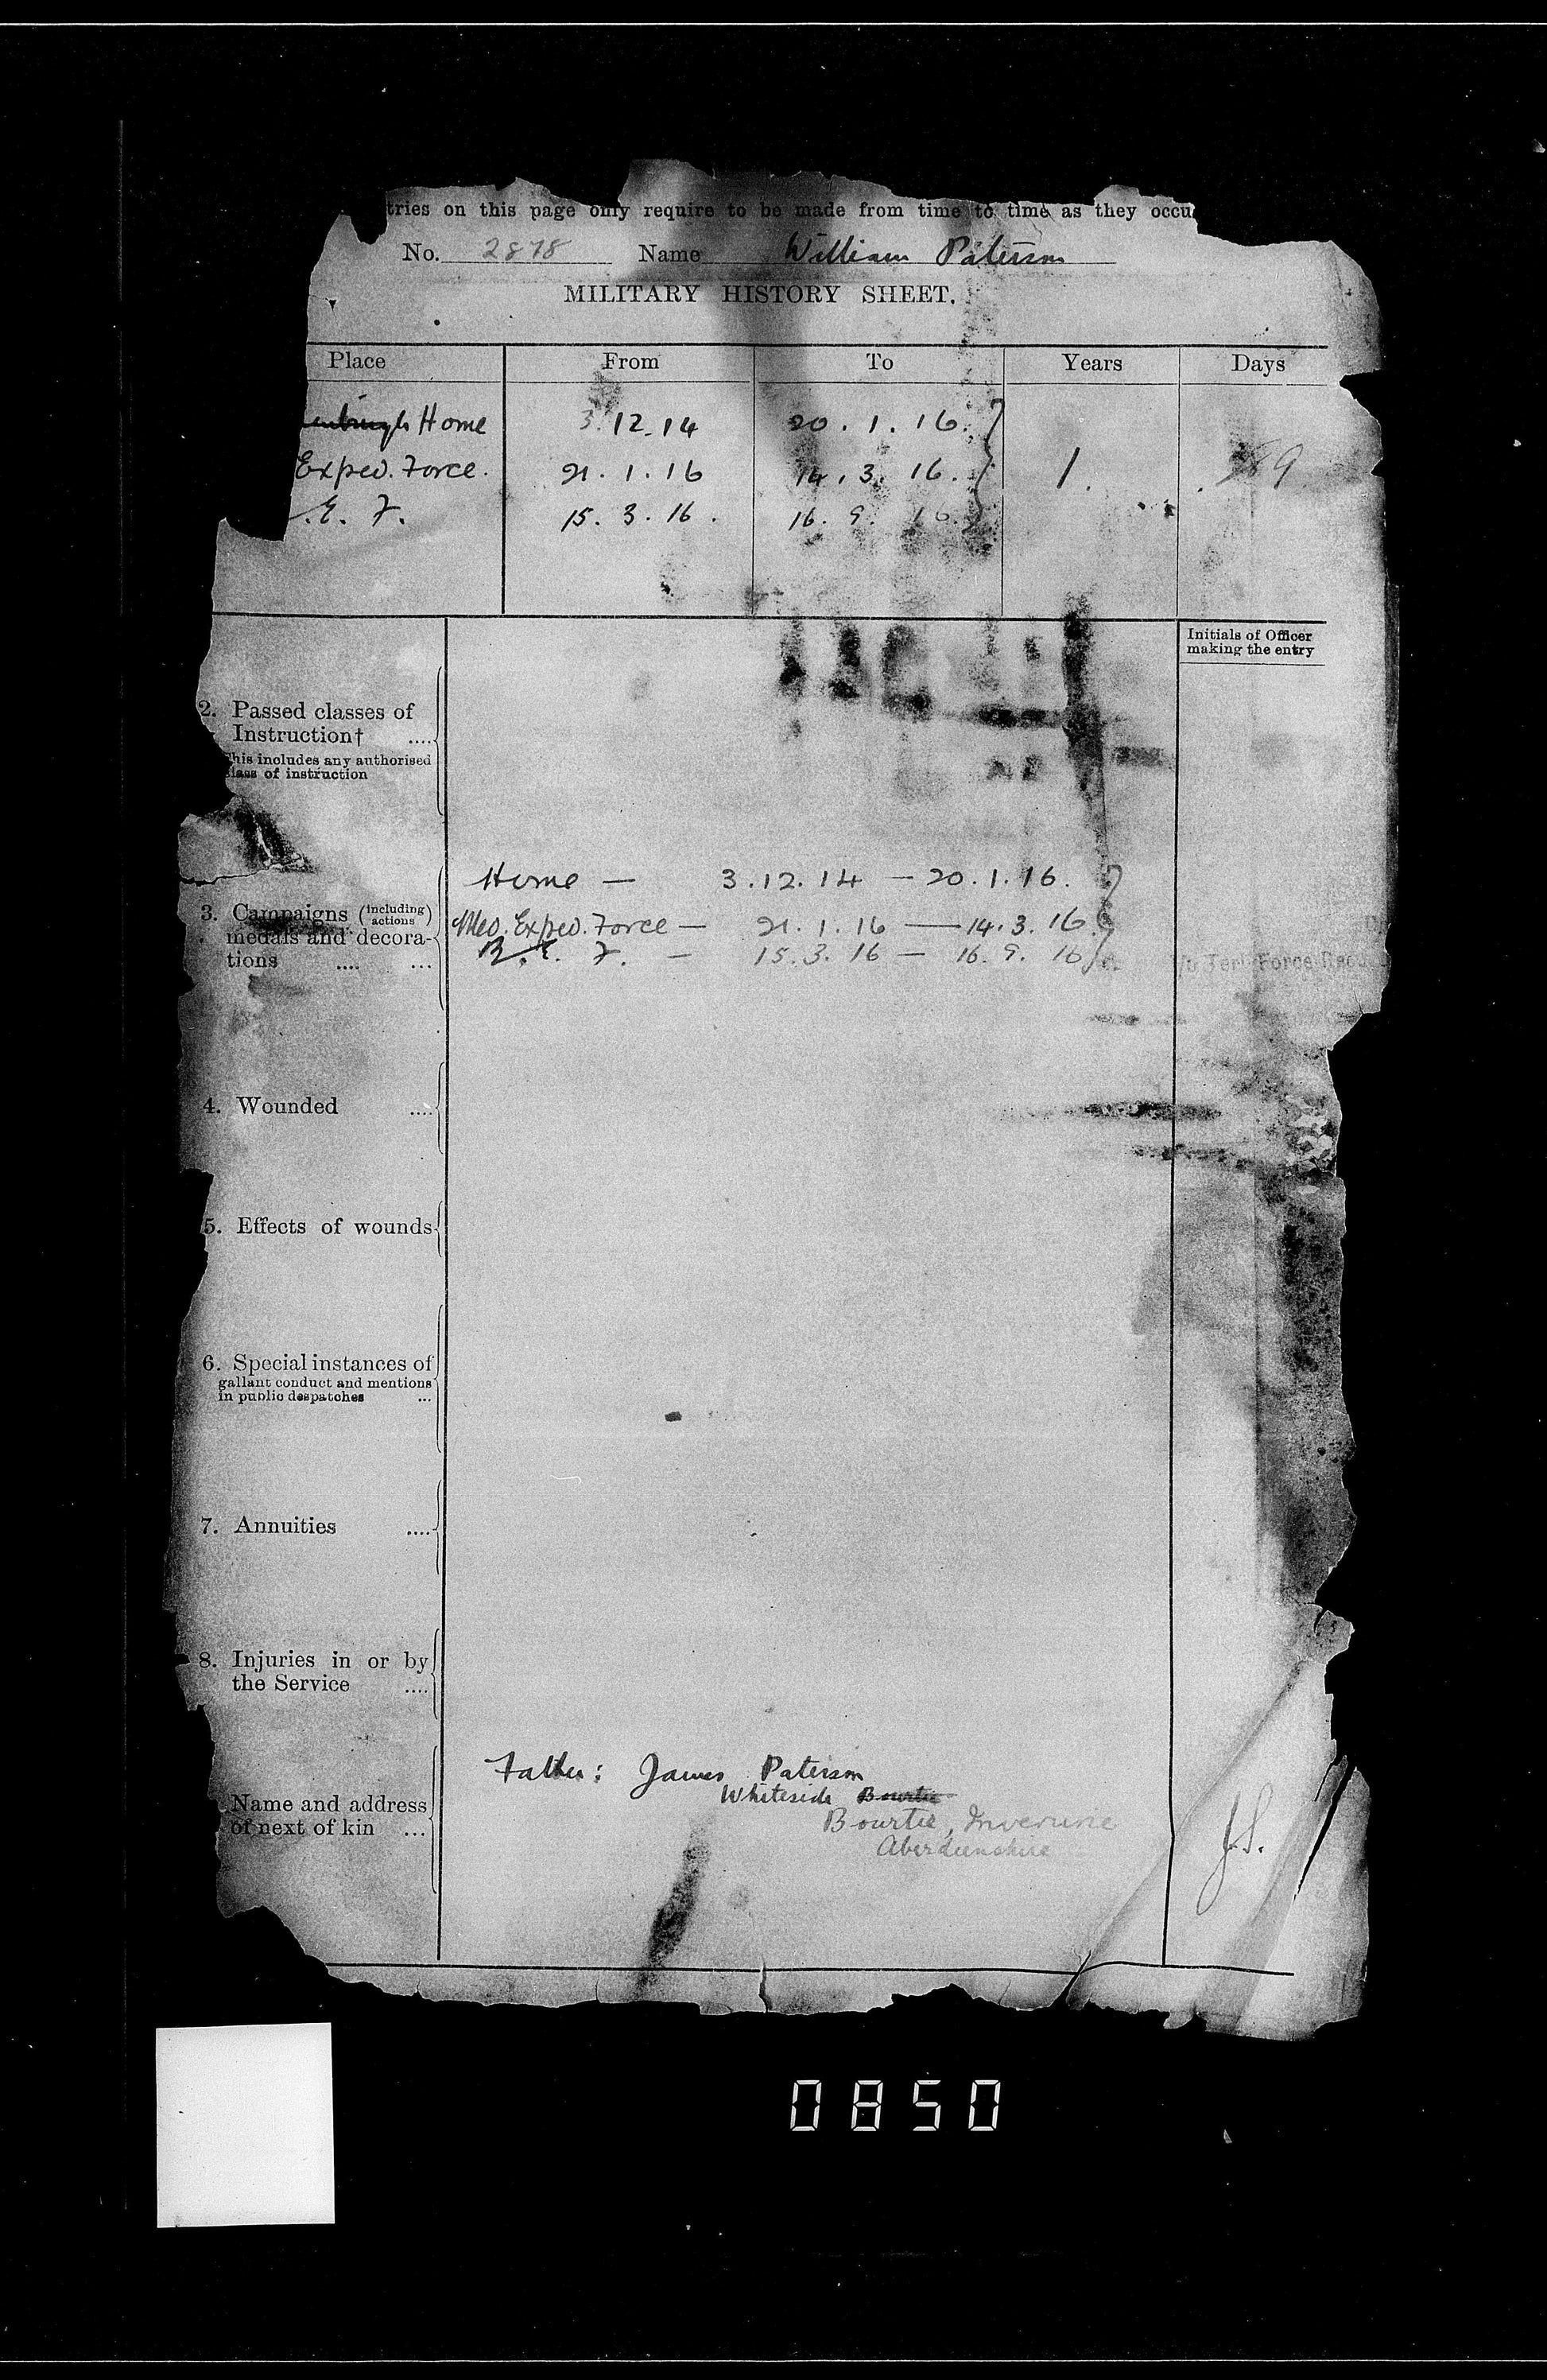 tries on this page only require to be made from time to time as they occu
No. 2878 Name William Paterson
MILITARY HISTORY SHEET.
Place From To Years Days
Home 3.12.14 20.1.16.
Exped. Force. 21.1.16 14.3.16. 1.
.E.F. 15.3.16. 16.9.16.
Initials of Officer
making the entry
2. Passed classes of
Instruction† ....
This includes any authorised
class of instruction
Home — 3.12.14 — 20.1.16.
3. Campaigns (including actions) Med. Exped. Force — 21.1.16 — 14.3.16.
medals and decora-
B.E.F. — 15.3.16 — 16.9.16
tions .... ...
Terr Force Reco
4. Wounded ....
5. Effects of wounds
6. Special instances of
gallant conduct and mentions
in public despatches ...
7. Annuities ....
8. Injuries in or by
the Service ....
Father: James Paterson
Whiteside Bourtie
Name and address
Bourtie, Inverurie
of next of kin ...
Aberdeenshire
J.S.
0850